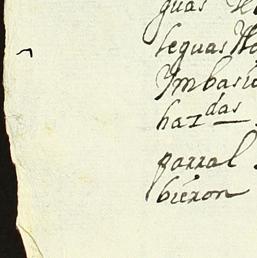 guas
leguas No
Ymbasi
haz.das
parral
bieron